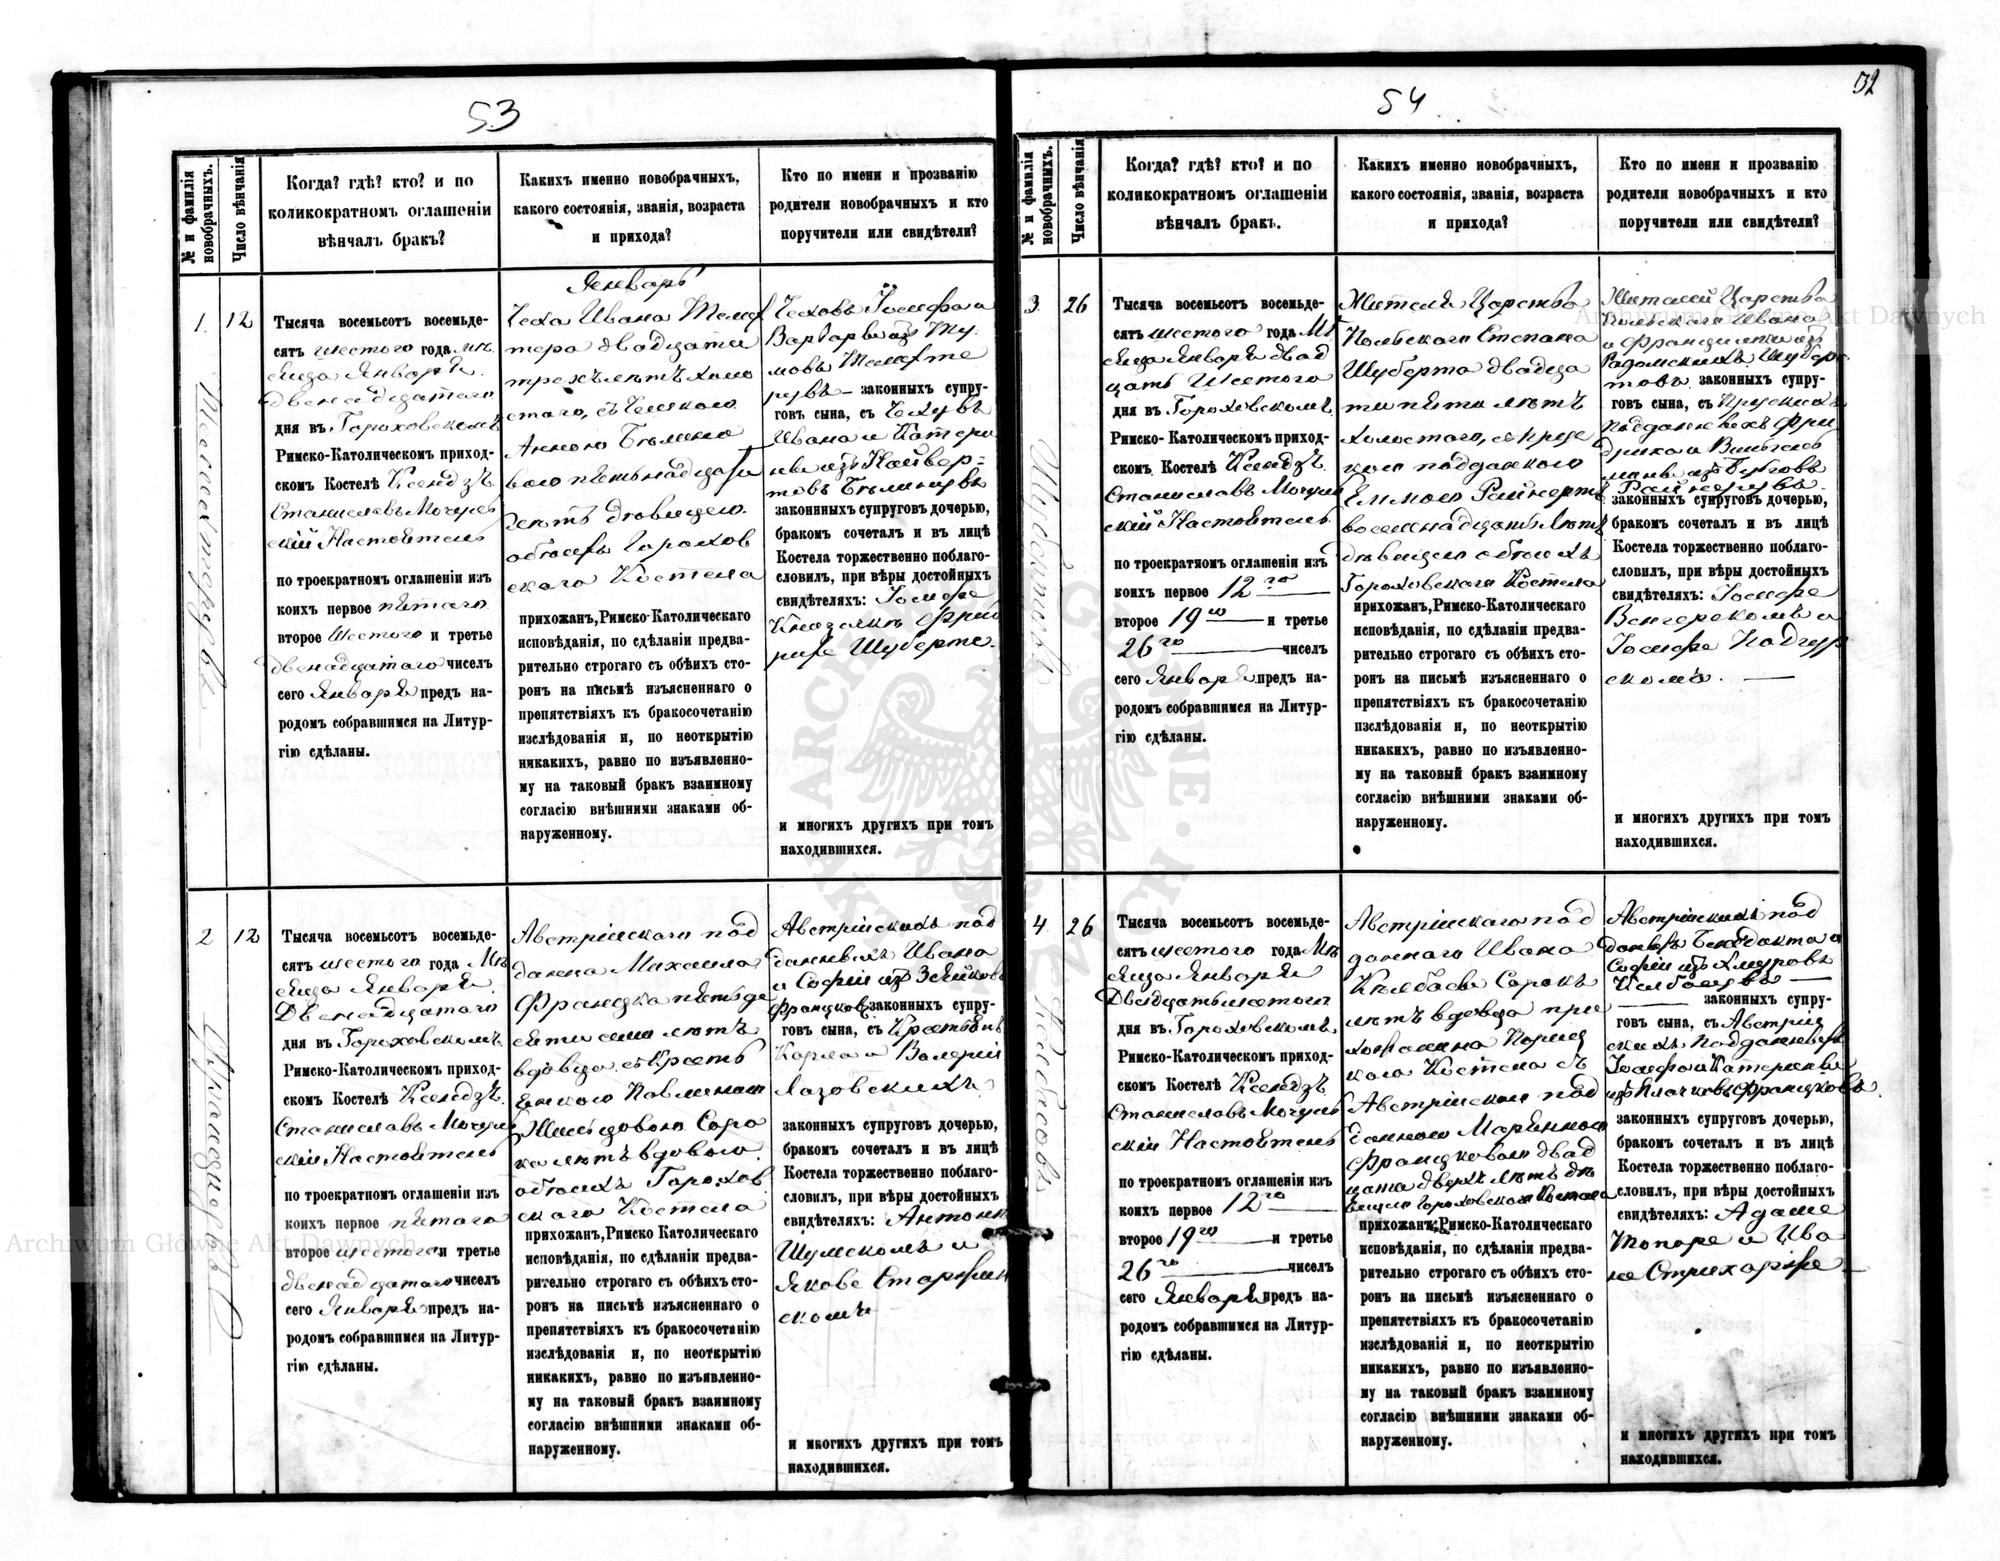 53
№ и фамилія новобрачныхъ.
Число вѣнчанія
Когда? гдѣ? кто? и по
коликократномъ оглашеніи
вѣнчалъ бракъ?
Какихъ именно новобрачныхъ,
какого состоянія, званія, возраста
и прихода?
Кто по имени и прозванію
родители новобрачныхъ и кто
поручители или свидѣтели?
1.
12
Тысяча восемьсотъ восемьде-
сятъ шестого года Мѣ
сяца Января
двенадцатого
дня въ Гороховскомъ
Римско-Католическомъ приход-
скомъ Костелѣ Ксендзъ
Станиславъ
скій Настоятель
по троекратномъ оглашеніи изъ
коихъ первое пятого
второе шестого и третье
двенадцатого чиселъ
сего Января предъ на-
родомъ собравшимся на Литур-
гію сдѣланы.
Январь
Чеха Ивана
двадцати
трехъ лѣтъ холо
стого, съ Чешкою
Анною
пятьнадцати
лѣтъ девицею
обоихъ Горохов
скаго Костела
прихожан, Римско-Католическаго
исповѣданія, по сдѣланіи предва-
рительно строгаго съ обѣихъ сто-
ронъ на письмѣ изъясненнаго о
препятствіяхъ къ бракосочетанію
изслѣдованія и, по неоткрытію
никакихъ, равно по изъявленно-
му на таковый бракъ взаимному
согласію внѣшними знаками об-
наруженному.
Чеховъ Іосифа и
Варвары изъ
законныхъ супру-
говъ сына, съ Чеховъ
Ивана и Катери
ны изъ
законнныхъ супруговъ дочерью,
бракомъ сочеталъ и въ лицѣ
Костела торжественно поблаго-
словилъ, при вѣры достойныхъ
свидѣтеляхъ: Іосифе
Фрид
рихе Шуберте.
и многихъ другихъ при томъ
находившихся.
2
12
Тысяча восемьсотъ восемьде-
сятъ шестого года Мѣ
сяца Января
Двенадцатого
дня въ Гороховскомъ
Римско-Католическомъ приход-
скомъ Костелѣ Ксендзъ
Станиславъ
скій Настоятель
по троекратномъ оглашеніи изъ
коихъ первое пятого
второе шестого и третье
двенадцатого чиселъ
сего Января предъ на-
родомъ собравшимся на Литур-
гію сдѣланы.
Австрійского под
данна Михаила
лѣтъ
вдовца, съ Кресть
янкою
Соро
ка лѣтъ вдовою
обоихъ Горохов
скаго Костела
прихожанъ, Римско Католическаго
исповѣданія, по сдѣланіи предва-
рительно строгаго съ обѣихъ сто-
ронъ на письмѣ изъясненнаго о
препятствіяхъ къ бракосочетанію
изслѣдованія и, по неоткрытію
никакихъ, равно по изъявленно-
му на таковый бракъ взаимному
согласію внѣшними знаками об-
наруженному.
Австрійскихъ под
данныхъ Ивана
и Софіи изъ
законныхъ супру-
говъ сына, съ Крестьянъ
Карла и Валеріи
Лазовскихъ
законныхъ супруговъ дочерью,
бракомъ сочеталъ и въ лицѣ
Костела торжественно поблаго-
словилъ, при вѣры достойныхъ
свидѣтеляхъ: Антони
Шумскомъ и
Якове
скомъ
и многихъ другихъ при томъ
находившихся.
54
32
№ и фамилія новобрачныхъ.
Число вѣнчанія
Когда? гдѣ? кто? и по
коликократномъ оглашеніи
вѣнчалъ бракъ.
Какихъ именно новобрачныхъ,
какого состоянія, званія, возраста
и прихода?
Кто по имени и прозванію
родители новобрачныхъ и кто
поручители или свидѣтели?
3.
26
Тысяча восемьсотъ восемьде-
сятъ шестого года Мѣ
сяца Января двад
цать Шестого
дня въ Гороховскомъ
Римско-Католическомъ приход-
скомъ Костелѣ Ксендзъ
Станиславъ
скій Настоятель
по троекратномъ оглашеніи изъ
коихъ первое 12го
второе 19го и третье
26го чиселъ
сего Января предъ на-
родомъ собравшимся на Литур-
гію сдѣланы.
Жителя Царства
Польскаго Степана
Шуберта двадца
ти пяти лѣтъ
холостого, съ Прус
кою подданною
восемнадцать лѣтъ
дѣвицею обоихъ
Гороховскаго Костела
прихожан, Римско-Католическаго
исповѣданія, по сдѣланіи предва-
рительно строгаго съ обѣихъ сто-
ронъ на письмѣ изъясненнаго о
препятствіяхъ къ бракосочетанію
изслѣдованія и, по неоткрытію
никакихъ, равно по изъявленно-
му на таковый бракъ взаимному
согласію внѣшними знаками об-
наруженному.
Жителей Царства
Польскаго Ивана
и Францишки изъ
Радомскихъ Шубер
товъ законныхъ супру-
говъ сына, съ Прускихъ
подданныхъ Фри
дриха и
законныхъ супруговъ дочерью,
бракомъ сочеталъ и въ лицѣ
Костела торжественно поблаго-
словилъ, при вѣры достойныхъ
свидѣтеляхъ: Іосифе
Венгерскомъ и
Іосифе Подгур
скомъ.
и многихъ другихъ при томъ
находившихся.
4.
26
Тысяча восемьсотъ восемьде-
сятъ шестого года Мѣ
сяца Января
Двадцатьшестого
дня въ Гороховскомъ
Римско-Католическомъ приход-
скомъ Костелѣ Ксендзъ
Станиславъ
скій Настоятель
по троекратномъ оглашеніи изъ
коихъ первое 12го
второе 19го и третье
26го чиселъ
сего Января предъ на-
родомъ собравшимся на Литур-
гію сдѣланы.
Австрійского под
данного Ивана
Сорокъ
лѣтъ вдовца при
хожанина
кого Костела съ
Австрійскою под
данною Марянною
двад
цати двухъ лѣтъ дѣ
вицею Гороховскаго Костела
прихожанъ, Римско-Католическаго
исповѣданія, по сдѣланіи предва-
рительно строгаго съ обѣихъ сто-
ронъ на письмѣ изъясненнаго о
препятствіяхъ къ бракосочетанію
изслѣдованія и, по неоткрытію
никакихъ, равно по изъявленно-
му на таковый бракъ взаимному
согласію внѣшними знаками об-
наруженному.
Австрійскихъ под
данныхъ Бенедикта и
Софіи изъ
законныхъ супру-
говъ сына, съ Австрій
скихъ подданныхъ
Іосифа и Катерины
законныхъ супруговъ дочерью,
бракомъ сочеталъ и въ лицѣ
Костела торжественно поблаго-
словилъ, при вѣры достойныхъ
свидѣтеляхъ: Адаме
Топоре и Ива
не
и многихъ другихъ при томъ
находившихся.
Archiwum Główne Akt Dawnych
Archiwum Główne Akt Dawnych